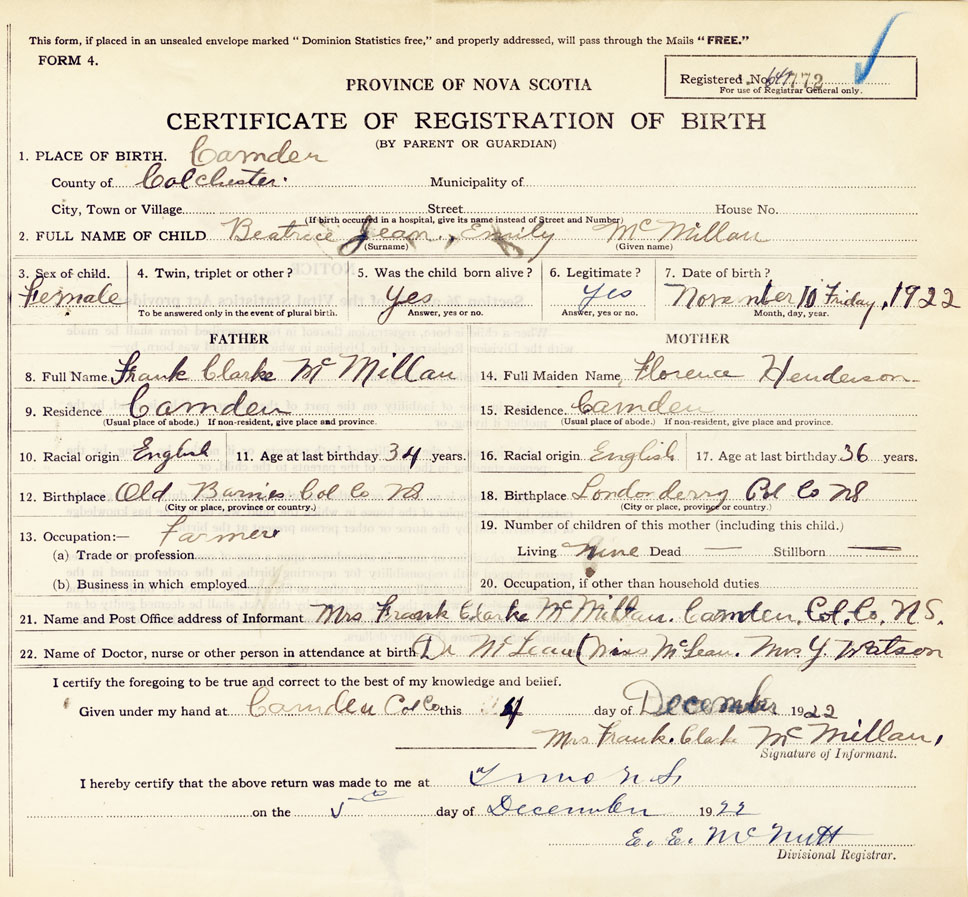 This form, if placed in an unsealed envelope marked "Dominion Statistics free," and properly addressed, will pass through the Mails "FREE."
FORM 4.
Registered No. 772
For use of Registrar General only.
PROVINCE OF NOVA SCOTIA
CERTIFICATE OF REGISTRATION OF BIRTH
(BY PARENT OR GUARDIAN)
1. PLACE OF BIRTH. Camden
County of Colchester. Municipality of
City, Town or Village Street House No.
(If birth occurred in a hospital, give its name instead of Street and Number)
2. FULL NAME OF CHILD Beatrice Jean, Emily McMillan
(Surname) (Given name)
3. Sex of child. 4. Twin, triplet or other? 5. Was the child born alive? 6. Legitimate? 7. Date of birth?
Female Yes Yes November 10 Friday, 1922
To be answered only in the event of plural birth. Answer, yes or no. Answer, yes or no. Month, day, year.
FATHER MOTHER
8. Full Name Frank Clarke McMillan 14. Full Maiden Name Florence Henderson
9. Residence Camden 15. Residence. Camden
(Usual place of abode.) If non-resident, give place and province. (Usual place of abode.) If non-resident, give place and province.
10. Racial origin English 11. Age at last birthday 34 years. 16. Racial origin English 17. Age at last birthday 36 years.
12. Birthplace Old Barnes Col Co NS 18. Birthplace Londonderry Col Co NS
(City or place, province or country.) (City or place, province or country.)
13. Occupation:— Farmer 19. Number of children of this mother (including this child.)
(a) Trade or profession Living Nine Dead — Stillborn —
(b) Business in which employed 20. Occupation, if other than household duties
21. Name and Post Office address of Informant Mrs Frank Clarke McMillan. Camden. Col. Co. N.S.
22. Name of Doctor, nurse or other person in attendance at birth Dr McLean (Miss McLean. Mrs Y. Watson
I certify the foregoing to be true and correct to the best of my knowledge and belief.
Given under my hand at Camden Col Co this 4 day of December 1922
Mrs Frank. Clark McMillan,
Signature of Informant.
I hereby certify that the above return was made to me at Truro N S
on the 5 day of December 1922
E. E. McNutt
Divisional Registrar.